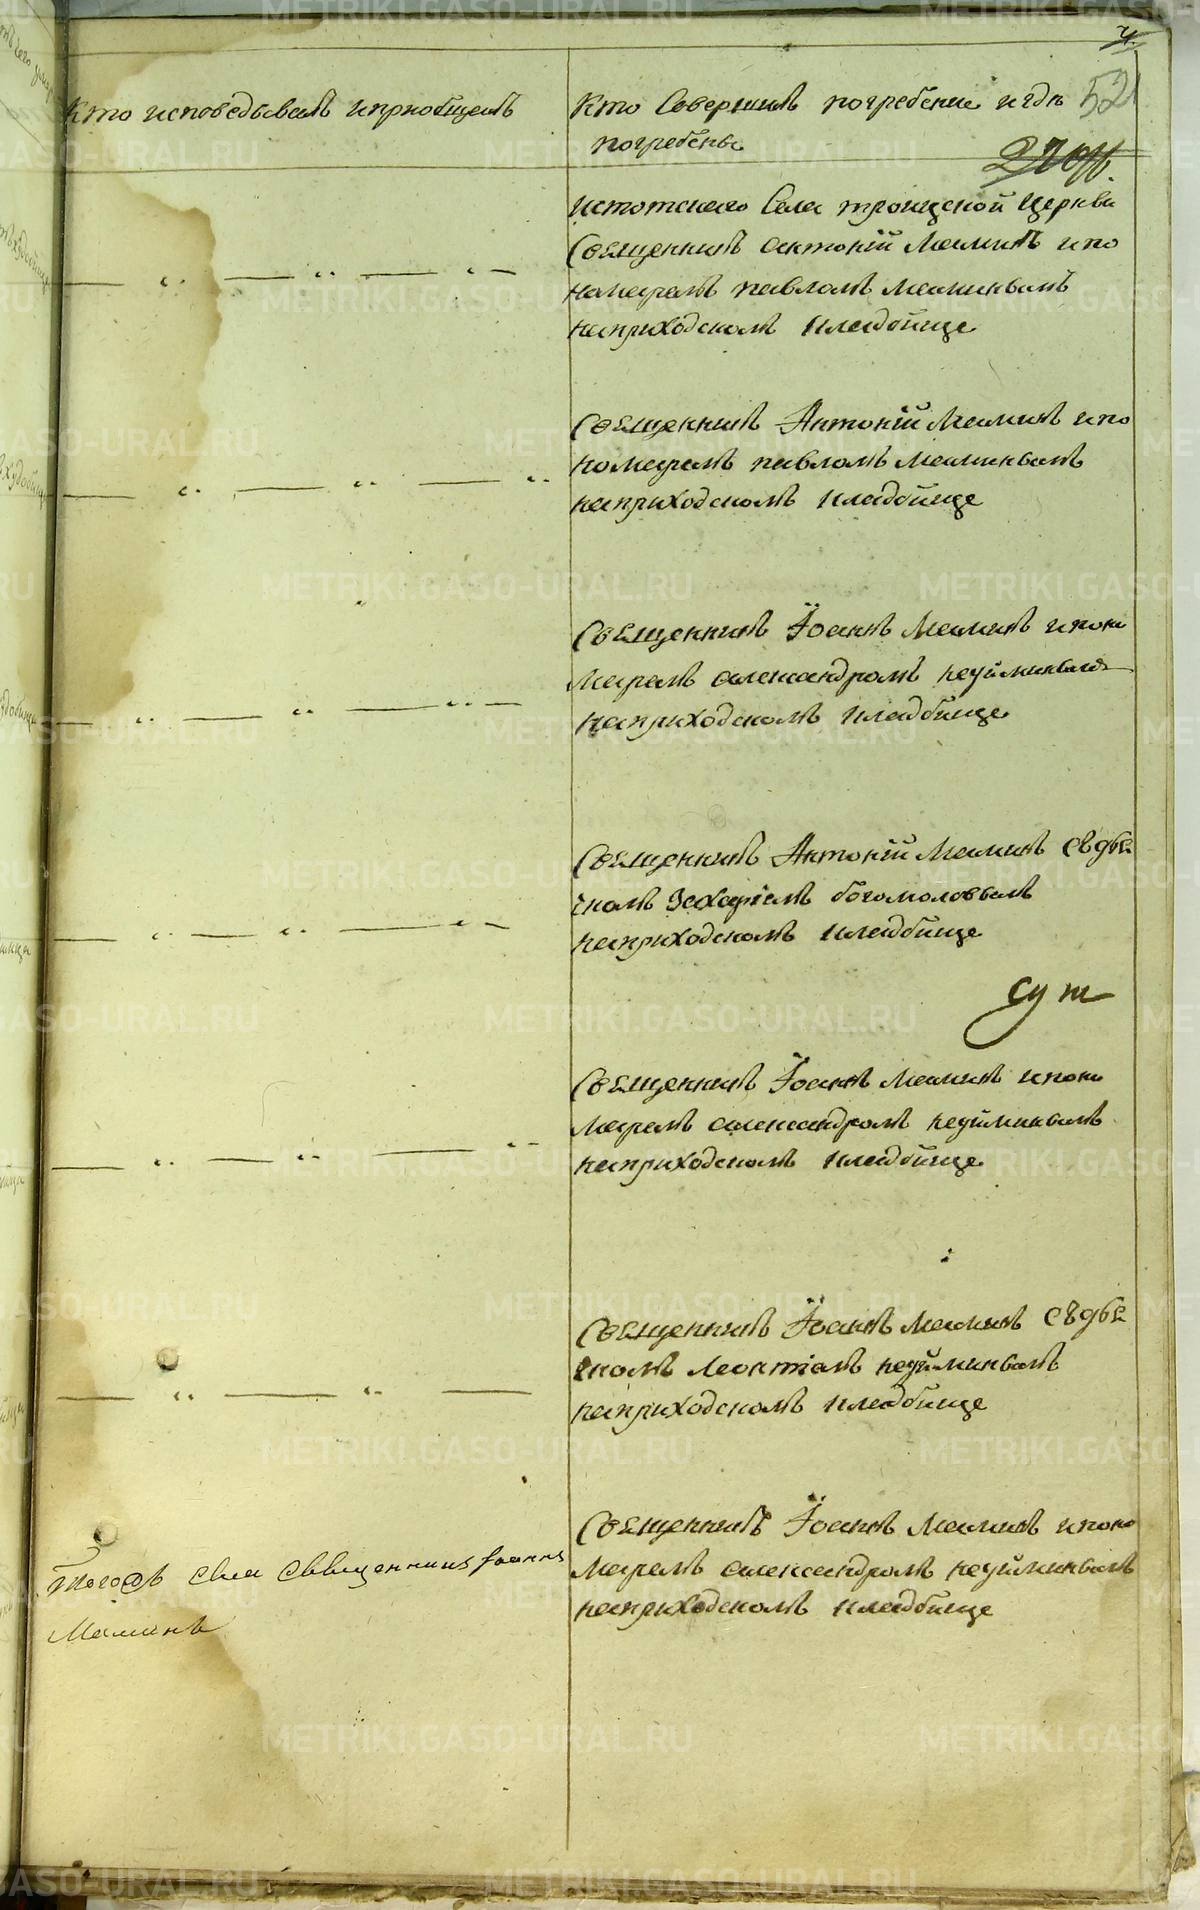 4.
521
Кто исповедывалъ и приобщалъ
Кто Совершилъ погребение и гдѣ
погребены
Истотского Села троицкой Церкви
Священникъ антонiй Маминъ и по
номаремъ павломъ маминымъ
на приходскомъ кладбище
Священникъ Антонiй Маминъ и по
номаремъ павломъ маминымъ
на приходскомъ кладбище
Священникъ Iоаннъ Маминъ и поно
маремъ александромъ неуйминымъ
на приходскомъ кладбище
Священникъ Антонiй Маминъ съ дья
чкомъ Захарiемъ богомоловымъ
на приходскомъ кладбище
Священникъ Iоаннъ Маминъ и поно
маремъ александромъ неуйминымъ
на приходскомъ кладбище
Священникъ Iоаннъ Маминъ съ дья
чкомъ леонтiемъ неуйминымъ
на приходскомъ кладбище
Тогожъ села священникъ Iоаннъ
Маминъ
Священникъ Iоаннъ Маминъ и поно
маремъ александромъ неуйминымъ
на приходскомъ кладбище
METRIKI.GASO-URAL.RU